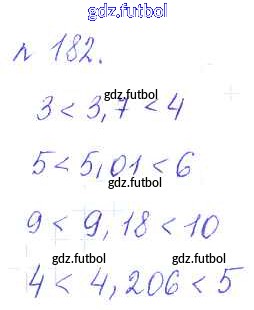 gdz.futbol
№ 182.
gdz.futbol
3 < 3,7 < 4
5 < 5,01 < 6
gdz.futbol
9 < 9,18 < 10
gdz.futbol
4 < 4,206 < 5
gdz.futbol